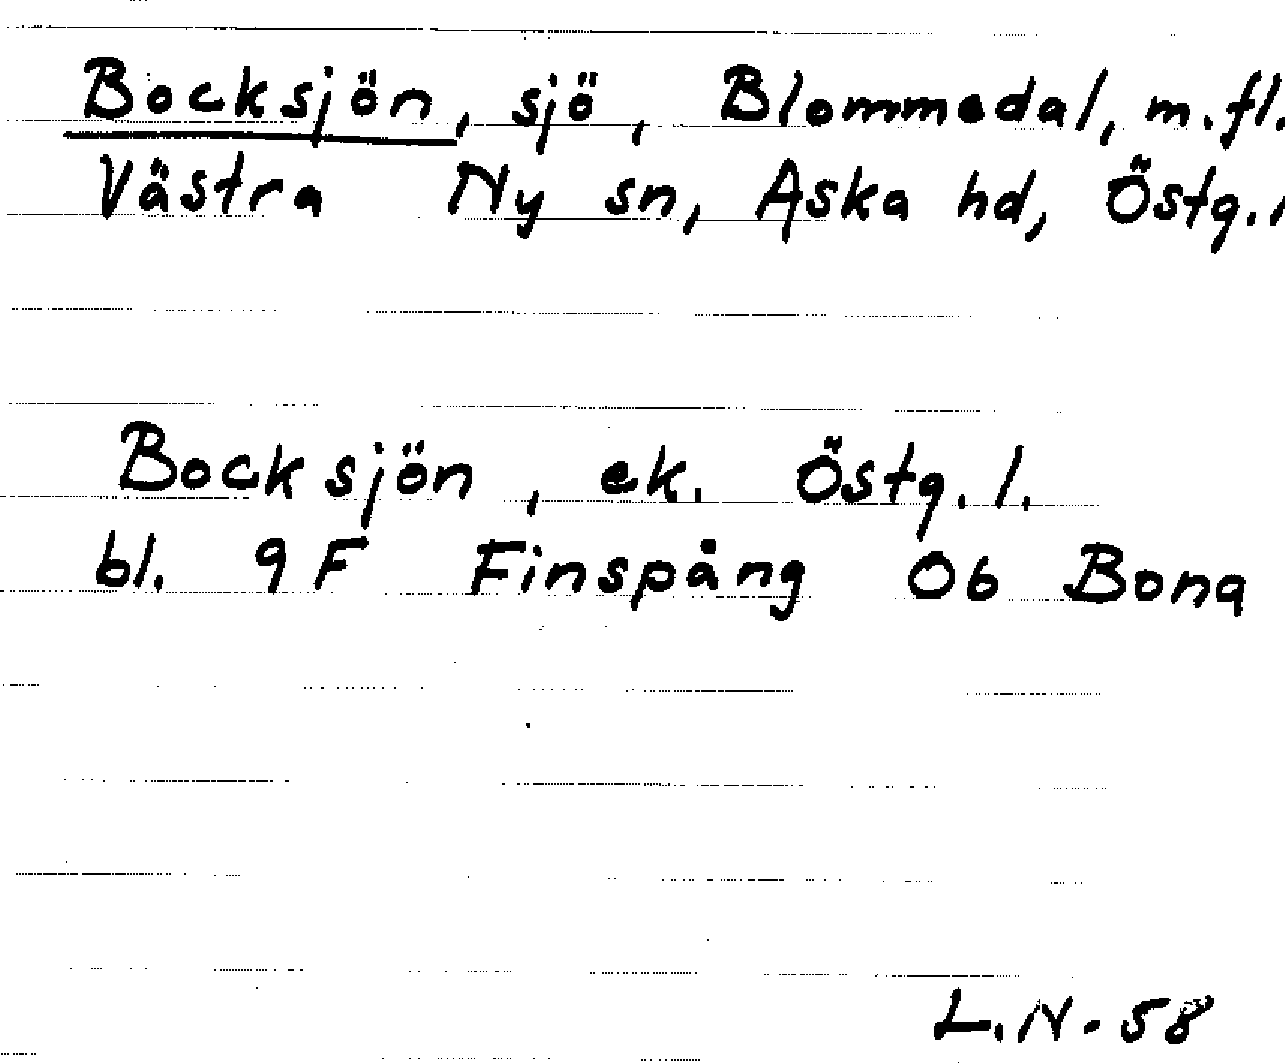 Bocksjön, sjö, Blommedal, m.fl.
Västra Ny sn, Aska hd, Östg.l
Bocksjön, ek. Östg.l.
bl. 9F Finspång 0b Bona
L.N. 58